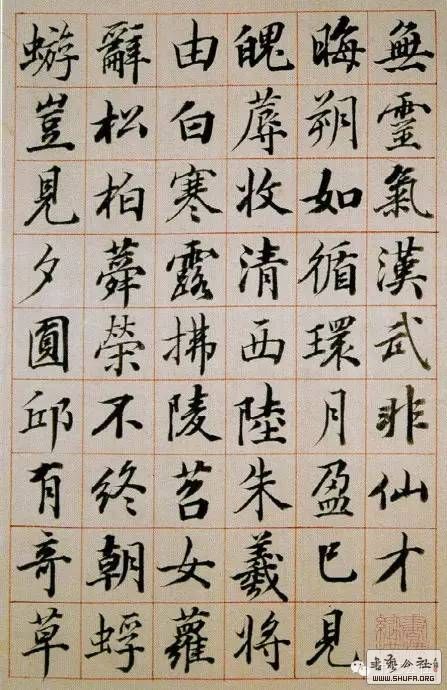 無靈氣漢武非仙才
晦朔如循環月盈巳見
魄蓐收清西陸朱羲將
由白寒露拂陵苕女蘿
辭松柏蕣榮不終朝蜉
蝣豈見夕圓邱有竒草
书艺公社
WWW.SHUFA.ORG